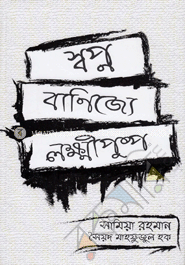 স্বপ্ন
বানিজ্যে
লক্ষ্মীপুষ্প
সামিয়া রহমান
সৈয়দ মাহফুজুল হক